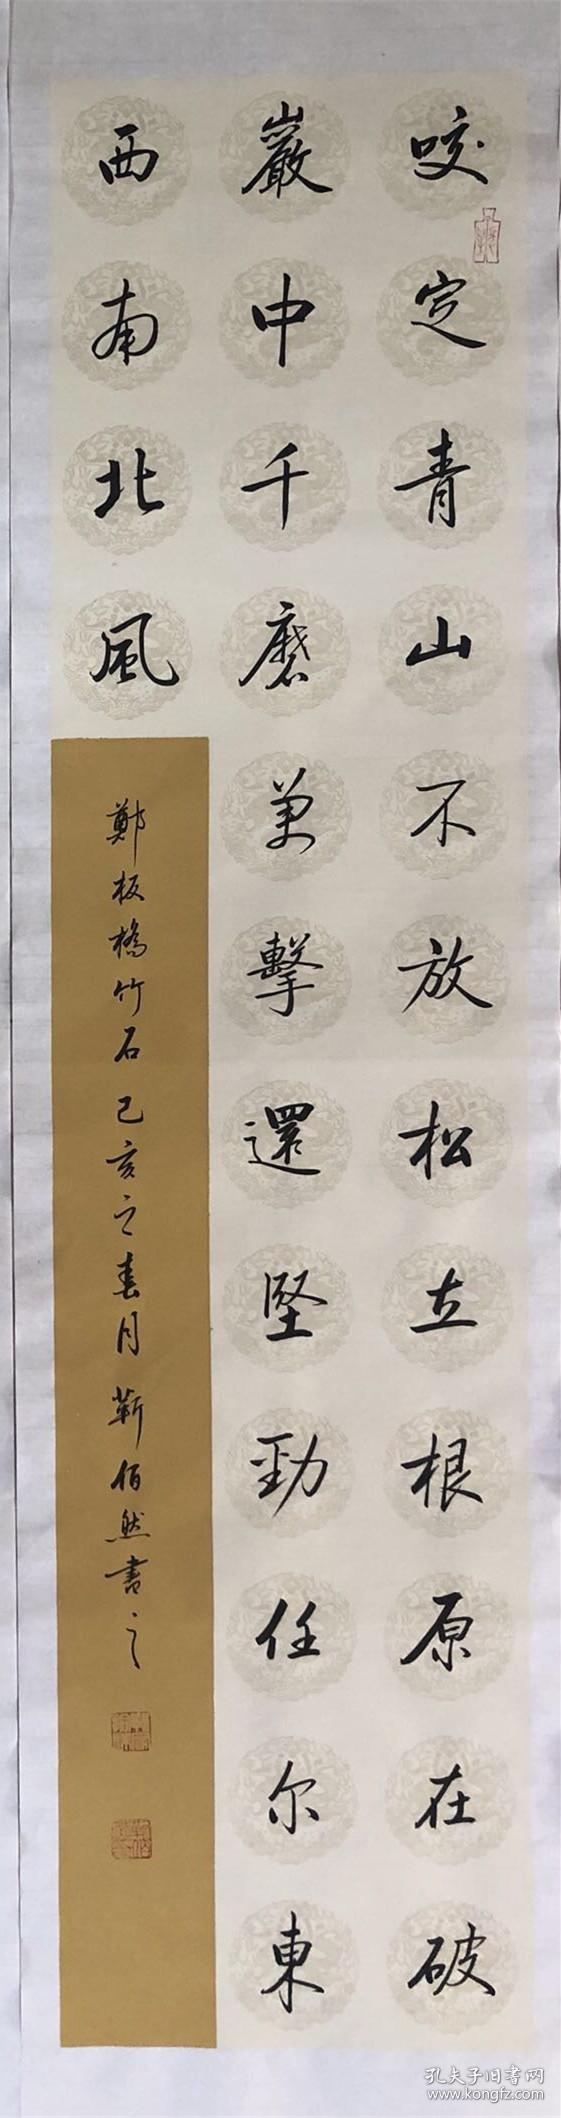 咬定青山不放松立根原在破
巖中千磨萬擊還堅勁任尔東
西南北風
鄭板橋竹石己亥之春月蘄佰然書之
孔夫子旧书网
www.kongfz.com